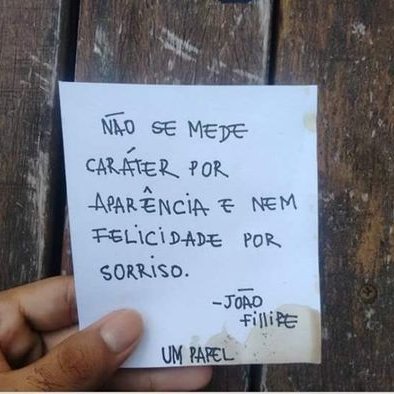 NÃO SE MEDE
CARÁTER POR
APARÊNCIA E NEM
FELICIDADE POR
SORRISO.
-JOÃO
FILLIPE
UM PAPEL